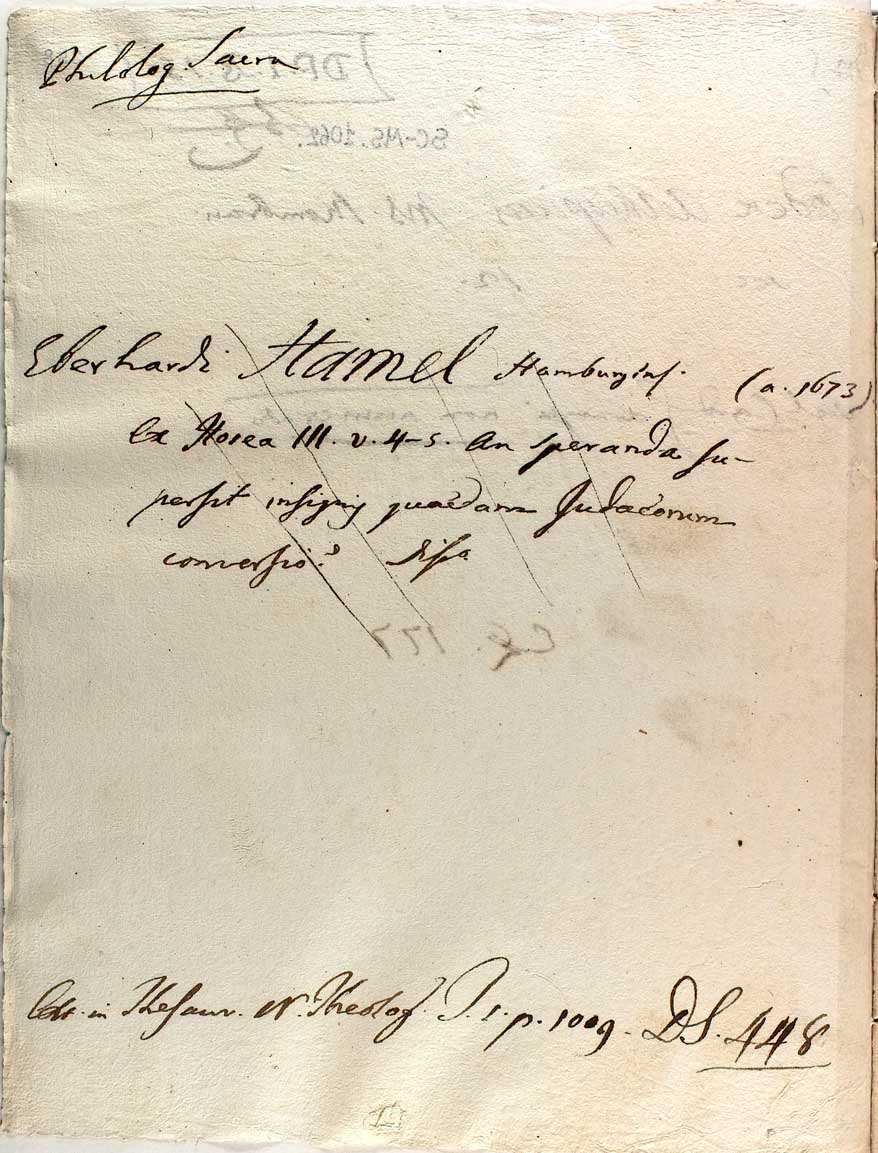 Philolog. Sacra
SC-MS. 1062.
Eberhardi Hamel Hamburgens. (a. 1673)
Ex Hosea III. v. 4-5. An speranda su-
persit insignis quaedam Judaeorum
conversio? disp
C.G. 177
Ext. in Thesaur. N. Theolog. T. 1. p. 1009. D.S. 448